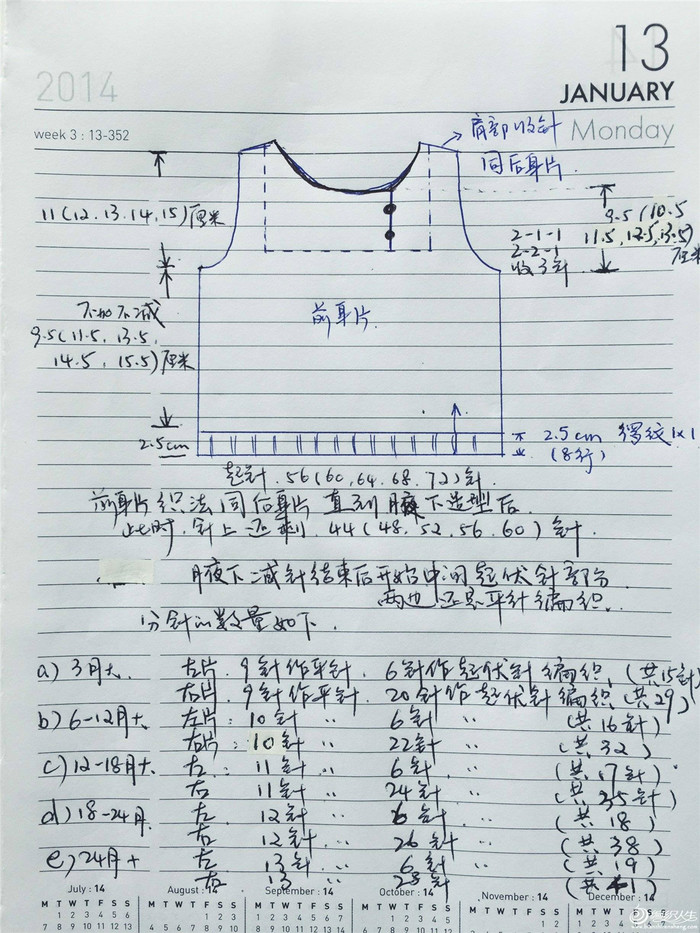 2014
13
JANUARY
week 3 : 13-352
Monday
肩部收针
同后身片
11(12.13.14,15)厘米
9.5(10.5
11.5,12.5,13.5)
厘米
2-1-1
2-2-1
收3针
不加不减
9.5(11.5,13.5,
14.5,15.5)厘米
前身片
2.5cm
2.5cm 罗纹1x1
(8行)
起针.56(60,64.68.72)针.
前身片织法同后身片 直到腋下造型后
此时.针上还剩.44(48,52,56,60)针.
腋下减针结束后开始中间起伏针部分
两边还是平针编织.
分针的数量如下.
a)3月大. 左片.9针作平针.6针作起伏针编织.(共15针)
右片.9针作平针.20针作起伏针编织(共29)
b)6-12月大 左片:10针 〃 6针 〃 (共16针)
右片:10针 〃 22针 〃 (共32)
c)12-18月大. 左:11针 〃 6针 〃 (共17针)
右 11针 〃 24针 〃 (共35针)
d)18-24月. 左 12针 〃 6针 〃 (共18)
右 12针 〃 26针 〃 (共38)
e)24月+ 左 13针 〃 6针 〃 (共19)
右 13 〃 28针 (共41)
July : 14
August : 14
September : 14
October : 14
November : 14
December : 14